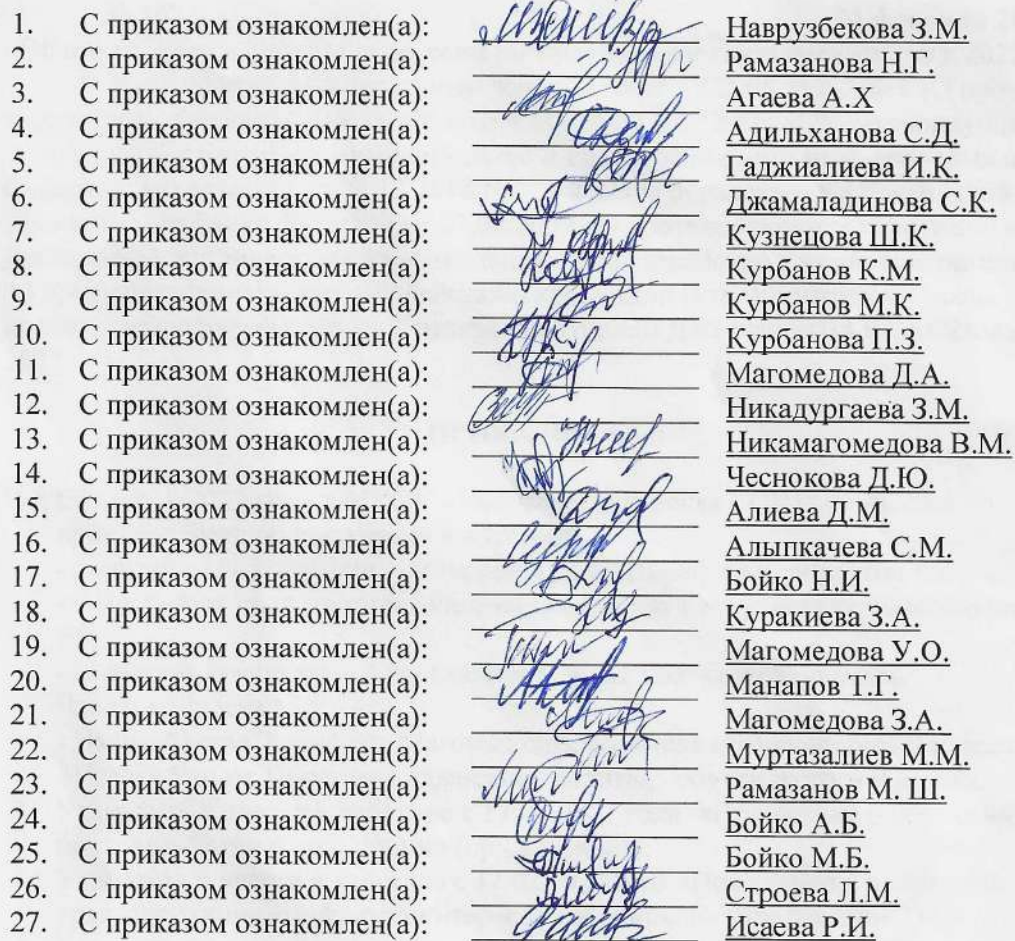 1. С приказом ознакомлен(а): Наврузбекова З.М.
2. С приказом ознакомлен(а): Рамазанова Н.Г.
3. С приказом ознакомлен(а): Агаева А.Х
4. С приказом ознакомлен(а): Адильханова С.Д.
5. С приказом ознакомлен(а): Гаджиалиева И.К.
6. С приказом ознакомлен(а): Джамаладинова С.К.
7. С приказом ознакомлен(а): Кузнецова Ш.К.
8. С приказом ознакомлен(а): Курбанов К.М.
9. С приказом ознакомлен(а): Курбанов М.К.
10. С приказом ознакомлен(а): Курбанова П.З.
11. С приказом ознакомлен(а): Магомедова Д.А.
12. С приказом ознакомлен(а): Никадургаева З.М.
13. С приказом ознакомлен(а): Никамагомедова В.М.
14. С приказом ознакомлен(а): Чеснокова Д.Ю.
15. С приказом ознакомлен(а): Алиева Д.М.
16. С приказом ознакомлен(а): Алыпкачева С.М.
17. С приказом ознакомлен(а): Бойко Н.И.
18. С приказом ознакомлен(а): Куракиева З.А.
19. С приказом ознакомлен(а): Магомедова У.О.
20. С приказом ознакомлен(а): Манапов Т.Г.
21. С приказом ознакомлен(а): Магомедова З.А.
22. С приказом ознакомлен(а): Муртазалиев М.М.
23. С приказом ознакомлен(а): Рамазанов М. Ш.
24. С приказом ознакомлен(а): Бойко А.Б.
25. С приказом ознакомлен(а): Бойко М.Б.
26. С приказом ознакомлен(а): Строева Л.М.
27. С приказом ознакомлен(а): Исаева Р.И.